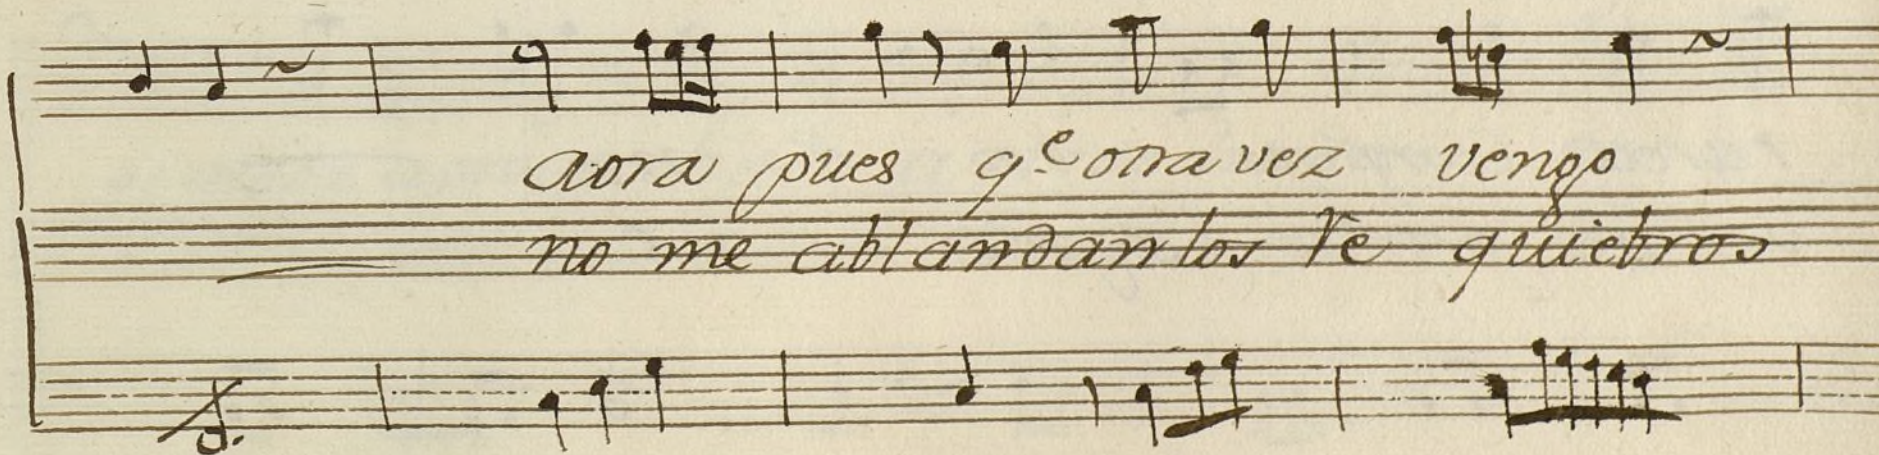 aora pues q.e otra vez vengo
no me ablandan los Re quiebros